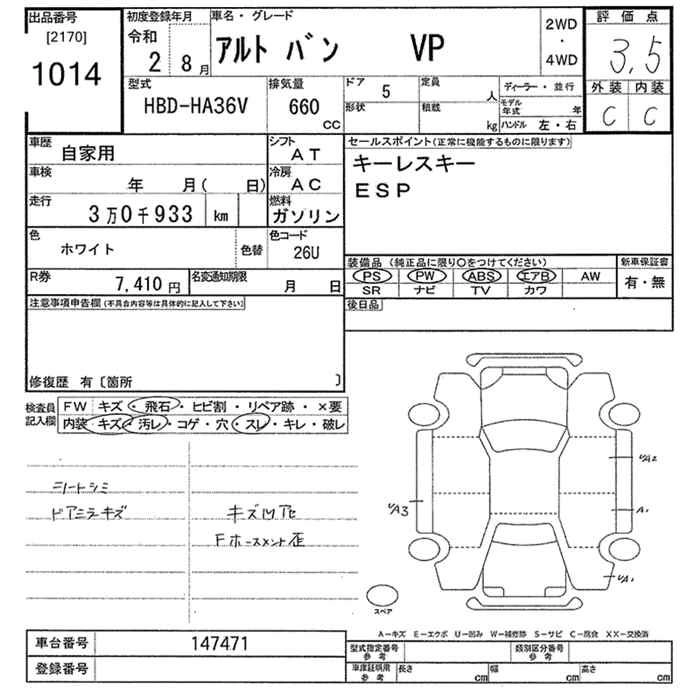 出品番号
[2170]
1014
初度登録年月
令和
2 8月
車名・グレード
アルト バン VP
2WD
・
4WD
評価点
3.5
外装 内装
C C
型式
HBD-HA36V
排気量
660
CC
ドア 5
形状
定員
人
積載
kg
ディーラー・並行
モデル年式 年
ハンドル 左・右
車歴
自家用
シフト
AT
車検
年 月( 日)
冷房
AC
走行
3万0千933 km
燃料
ガソリン
色
ホワイト
色替
色コード
26U
R券
7,410円
名変通知期限
月 日
セールスポイント(正常に機能するものに限ります)
キーレスキー
ESP
装備品 (純正品に限り〇をつけてください)
PS PW ABS エアB AW
SR ナビ TV カワ
新車保証書
有・無
後日品
注意事項申告欄(不具合内容等は具体的に記入して下さい)
修復歴 有〔箇所 〕
検査員
記入欄
FW キズ・飛石・ヒビ割・リペア跡・×要
内装・キズ・汚レ・コゲ・穴・スレ・キレ・破レ
シートシミ
ドアミラキズ
キズ凹他
Fホースメント歪
UA2
A1
UA3
UA1
スペア
A−キズ E−エクボ U−凹み W−補修跡 S−サビ C−腐食 XX−交換済
車台番号 147471
登録番号
型式指定番号
参考
類別区分番号
参考
車庫証明用
参考
長さ cm
幅 cm
高さ cm